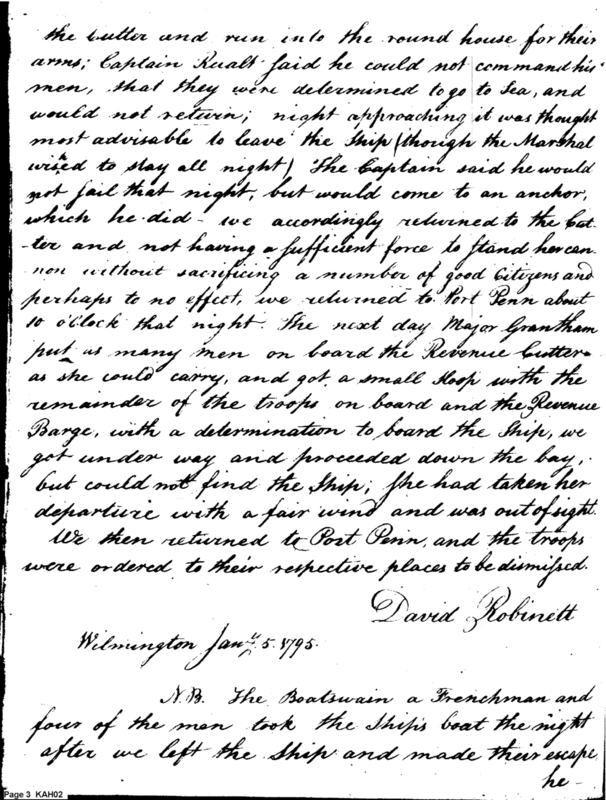 the Cutter and run into the round house for their
arms; Captain Rualt said he could not command his
men, that they were determined to go to Sea, and
would not return; night approaching it was thought
most advisable to leave the Ship (though the Marshal
wished to stay all night) The Captain said he would
not sail that night, but would come to an anchor,
which he did - we accordingly returned to the Cut-
ter and not having a sufficient force to stand her can
non without sacrificing a number of good Citizens and
perhaps to no effect, we returned to Port Penn about
10 o'Clock that night. The next day Major Grantham
put as many men on board the Revenue Cutter
as she could carry, and got a small Sloop with the
remainder of the troops on board and the Revenue
Barge, with a determination to board the Ship, we
got under way and proceeded down the bay,
but could not find the Ship; She had taken her
departure with a fair wind and was out of sight.
We then returned to Port Penn, and the troops
were ordered to their respective places to be dismissed.
David Robinett
Wilmington Jany. 5. 1795.
N.B. The Boatswain a Frenchman and
four of the men took the Ship's boat the night
after we left the Ship and made their escape,
he -
Page 3 KAH02